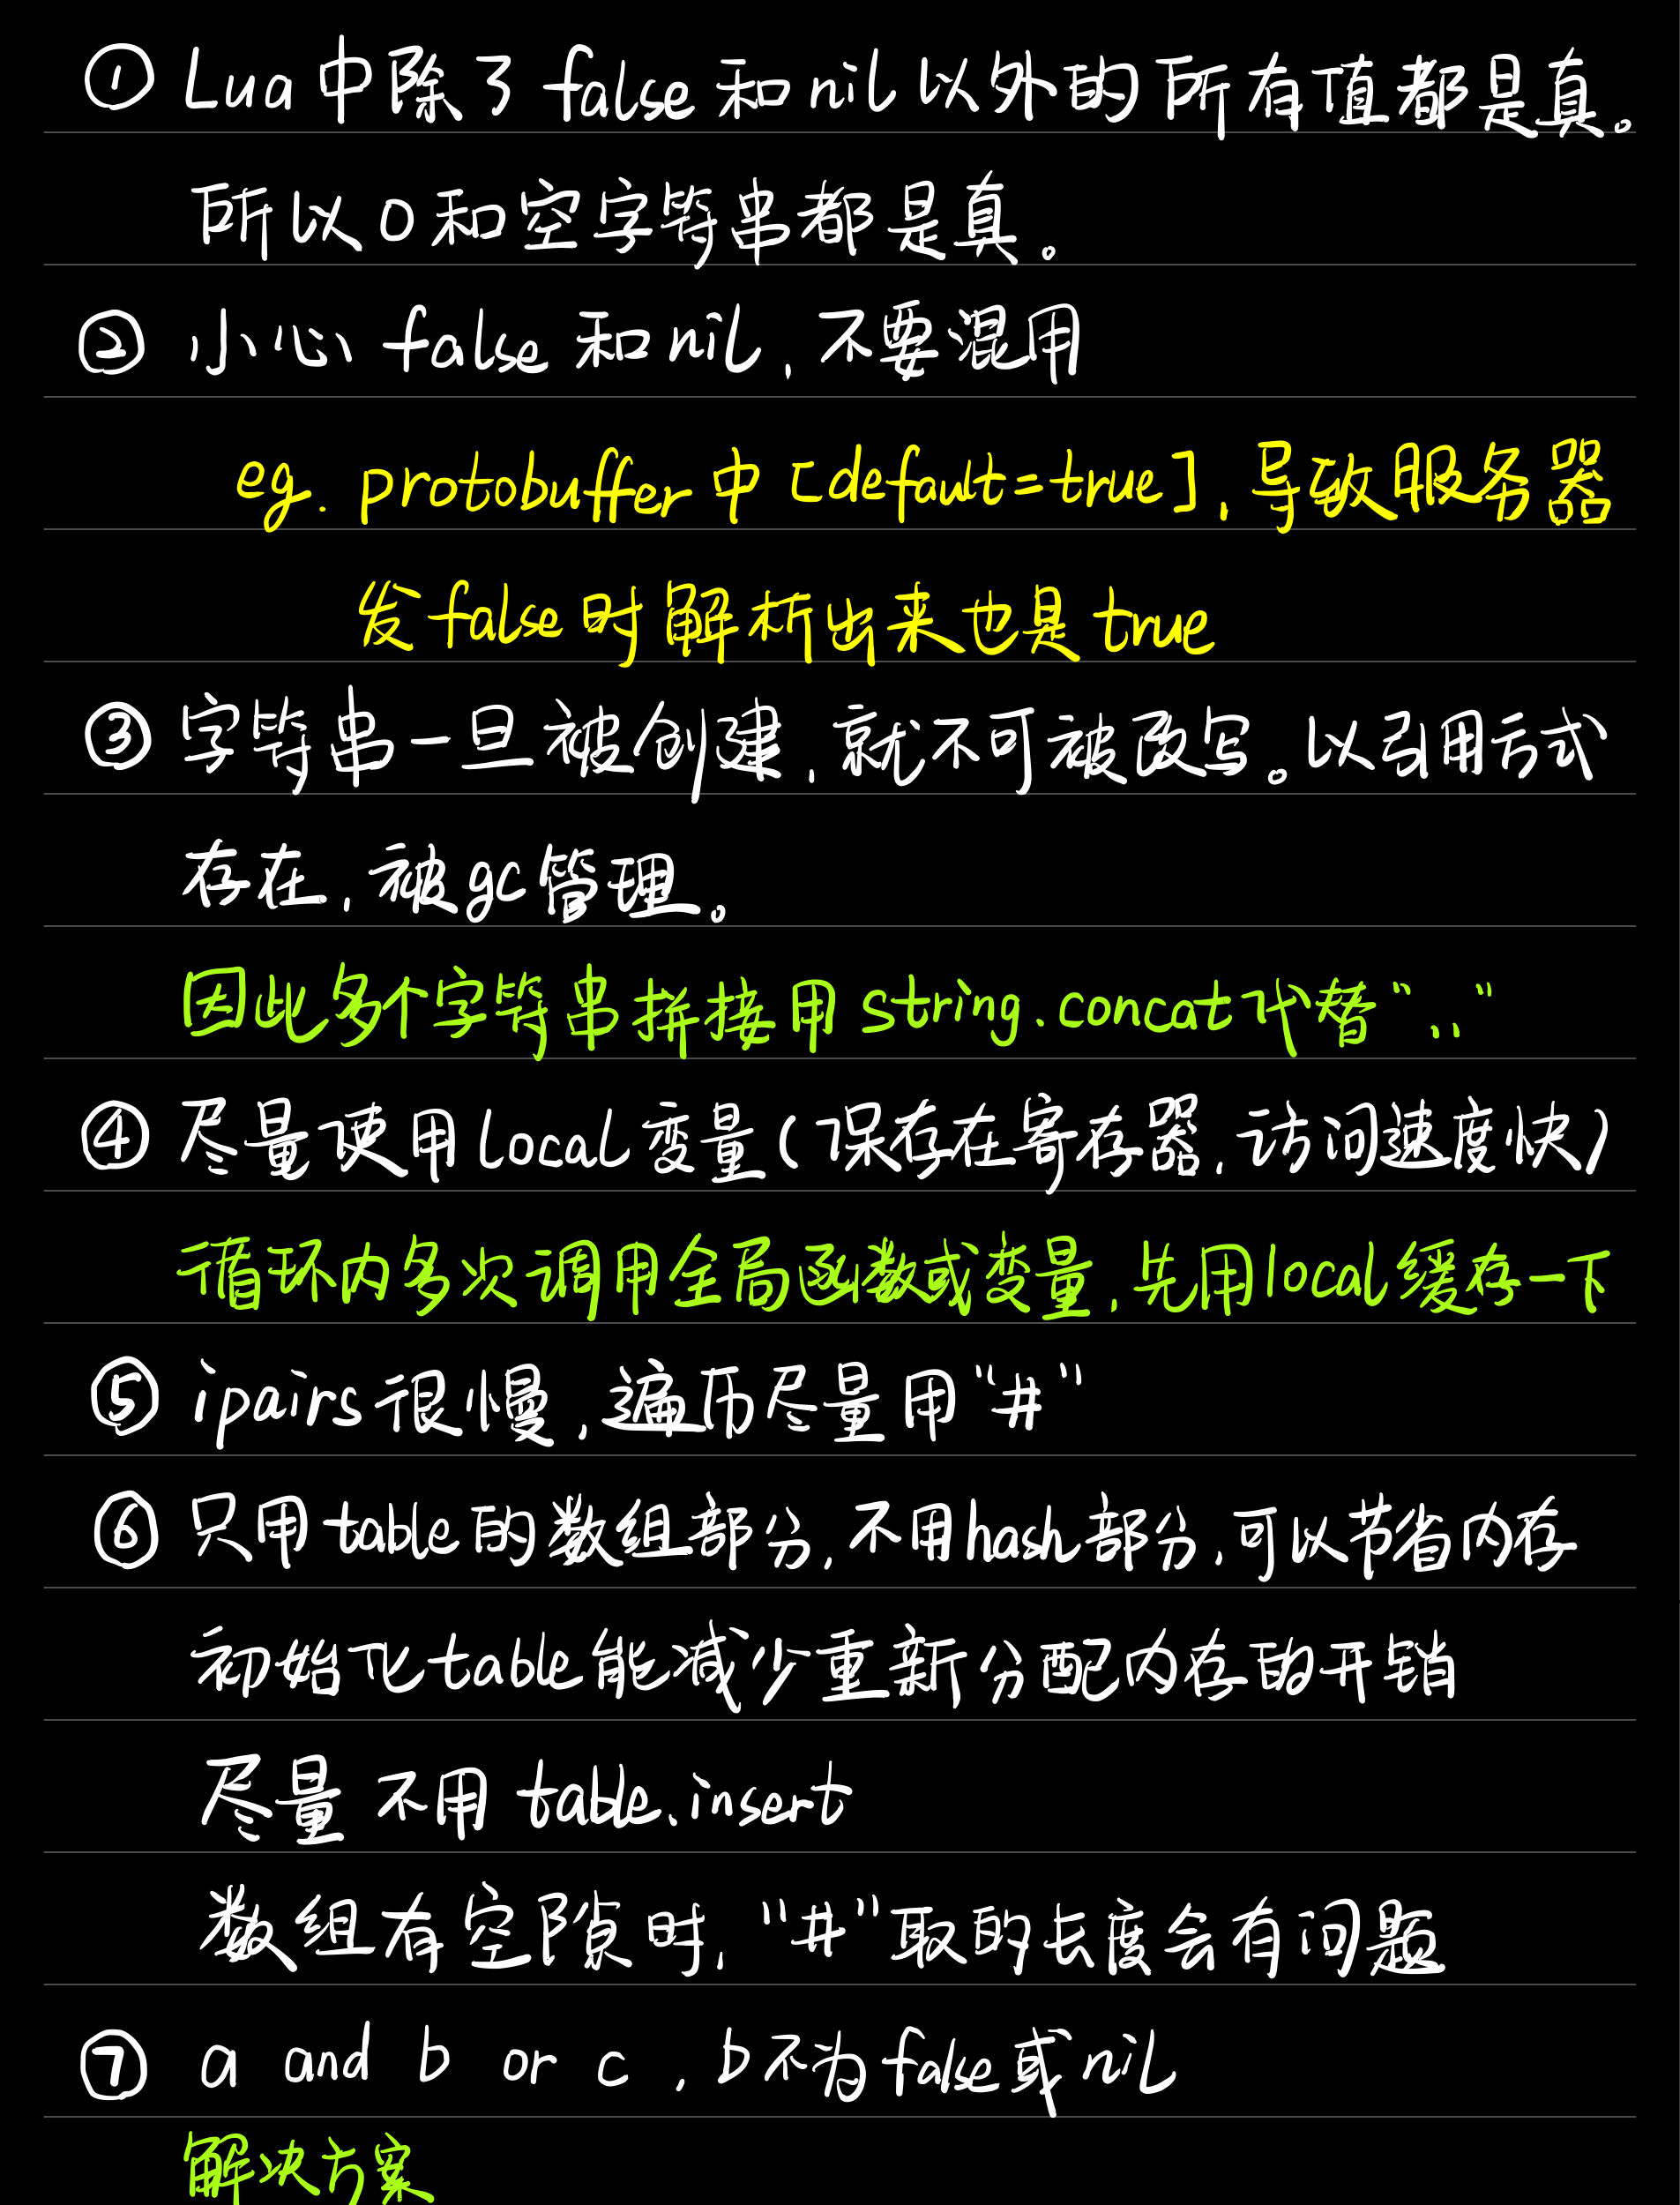 ① Lua中除了false和nil以外的所有值都是真。
所以0和空字符串都是真。
② 小心false和nil，不要混用
eg. protobuffer中[default=true]，导致服务器
发false时解析出来也是true
③ 字符串一旦被创建，就不可被改写。以引用方式
存在，被gc管理。
因此多个字符串拼接用string.concat代替".."
④ 尽量使用local变量(保存在寄存器，访问速度快)
循环内多次调用全局函数或变量，先用local缓存一下
⑤ ipairs很慢，遍历尽量用"#"
⑥ 只用table的数组部分，不用hash部分，可以节省内存
初始化table能减少重新分配内存的开销
尽量不用table.insert
数组有空隙时，"#"取的长度会有问题
⑦ a and b or c，b不为false或nil
解决方案